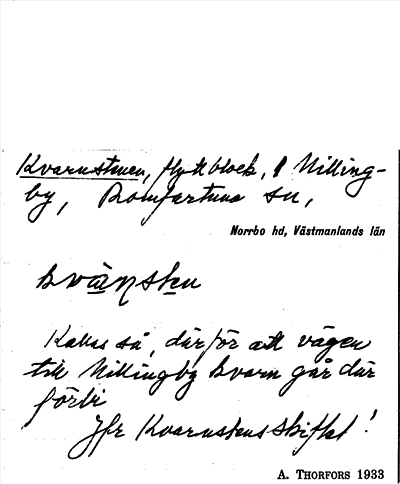 Kvarnstenen, flyttblock, i Nilling-
by, Romfartuna sn,
Norrbo hd, Västmanlands län
kvänsten
Kallas så, därför att vägen
till Nillingby kvarn går där
förbi
Jfr Kvarnstensskiftet!
A. THORFORS 1933